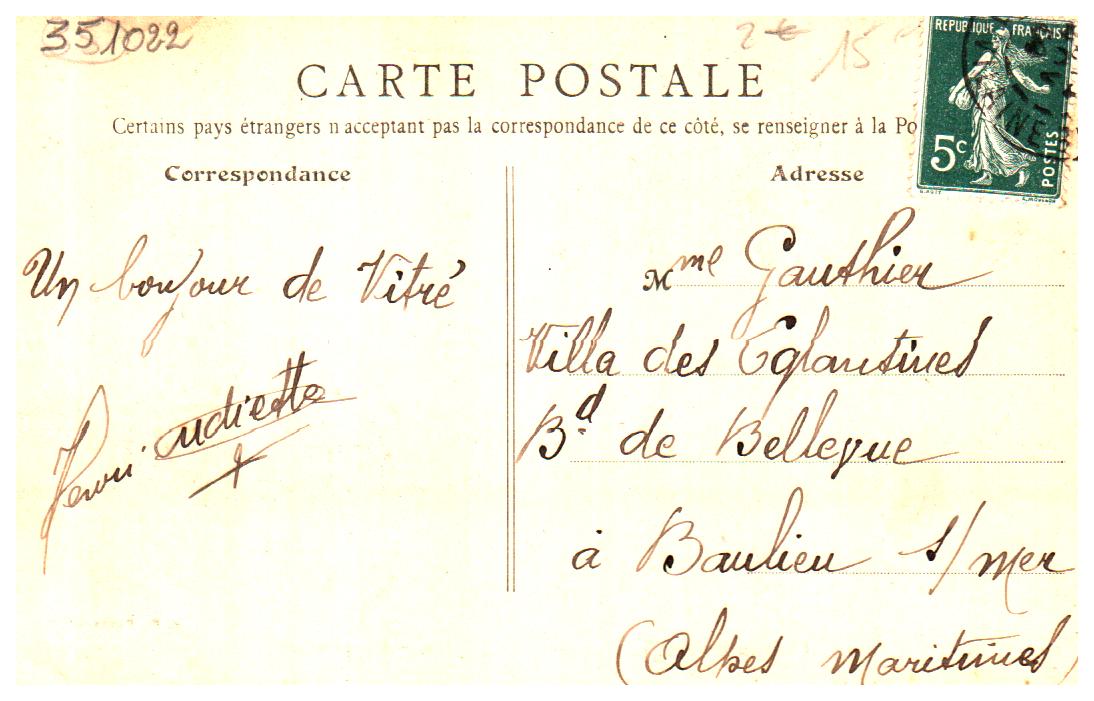 351022
2 €
15
CARTE POSTALE
Certains pays étrangers n acceptant pas la correspondance de ce côté, se renseigner à la Po
REPUBLIQUE FRANÇAISE
5c
POSTES
Correspondance
Adresse
Un bonjour de Vitré
Henri
Mme Gauthier
Villa des Eglantines
Bd de Bellevue
à Baulieu s/mer
(Alpes Maritimes)